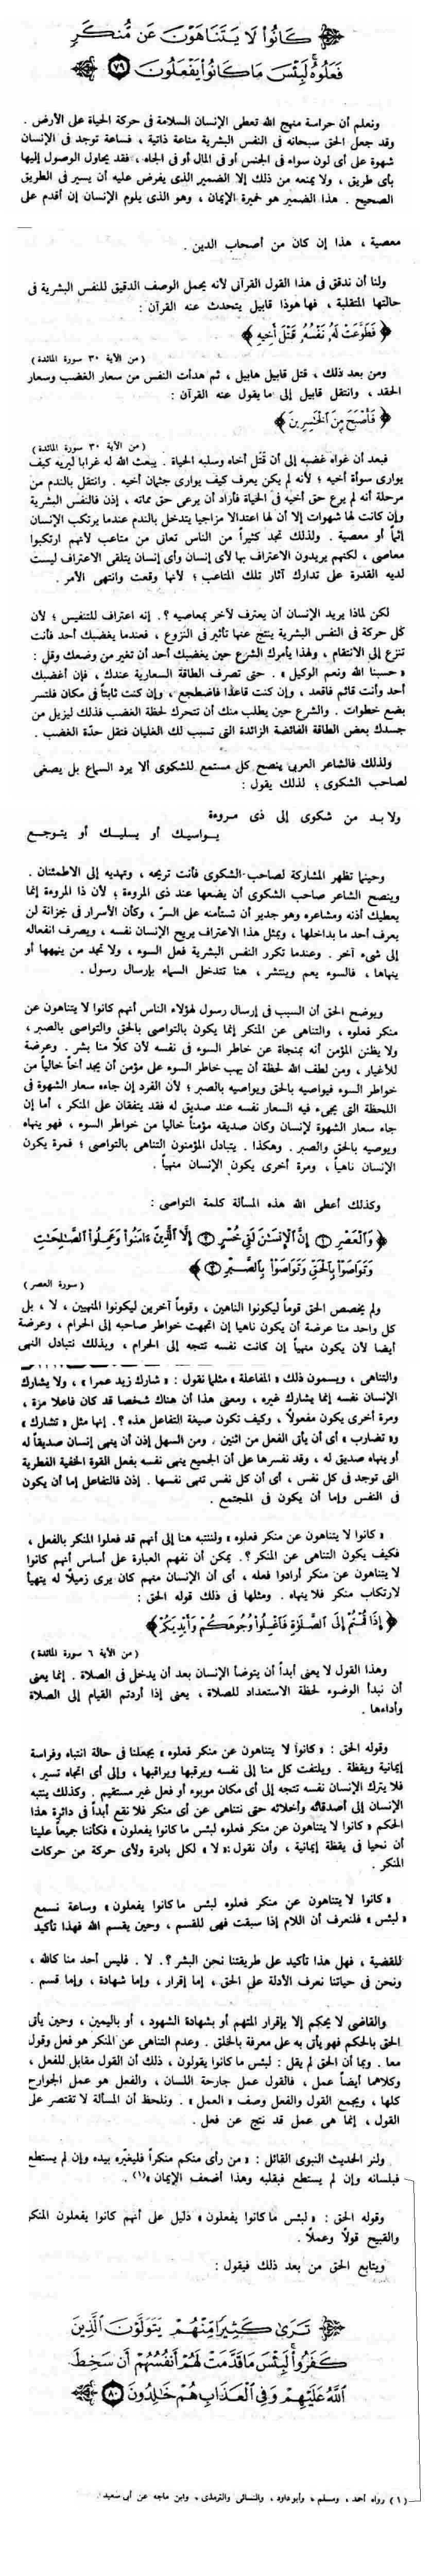 كَانُوا۟ لَا يَتَنَاهَوْنَ عَن مُّنكَرٍ
فَعَلُوهُ لَبِئْسَ مَا كَانُوا۟ يَفْعَلُونَ ٧٩
ونعلم أن حراسة منهج الله تعطى الإنسان السلامة فى حركة الحياة على الأرض .
وقد جعل الحق سبحانه فى النفس البشرية مناعة ذاتية ، فساعة توجد فى الإنسان
شهوة على أى لون سواء فى الجنس أو فى المال أو فى الجاه ، فقد يحاول الوصول إليها
بأى طريق ، ولا يمنعه من ذلك إلا الضمير الذى يفرض عليه أن يسير فى الطريق
الصحيح . هذا الضمير هو خميرة الإيمان ، وهو الذى يلوم الإنسان إن أقدم على
معصية ، هذا إن كان من أصحاب الدين .
ولنا أن ندقق فى هذا القول القرآنى لأنه يحمل الوصف الدقيق للنفس البشرية فى
حالتها المتقلبة ، فها هوذا قابيل يتحدث عنه القرآن :
﴿ فَطَوَّعَتْ لَهُۥ نَفْسُهُۥ قَتْلَ أَخِيهِ ﴾
( من الآية ٣٠ سورة المائدة )
ومن بعد ذلك ، قتل قابيل هابيل ، ثم هدأت النفس من سعار الغضب وسعار
الحقد ، وانتقل قابيل إلى ما يقول عنه القرآن :
﴿ فَأَصْبَحَ مِنَ ٱلْخَٰسِرِينَ ﴾
( من الآية ٣٠ سورة المائدة )
فبعد أن غواه غضبه إلى أن قتل أخاه وسلبه الحياة . يبعث الله له غرابا ليريه كيف
يوارى سوأة أخيه ؛ لأنه لم يكن يعرف كيف يوارى جثمان أخيه . وانتقل بالندم من
مرحلة أنه لم يرع حق أخيه فى الحياة فأراد أن يرعى حق مماته ، إذن فالنفس البشرية
وإن كانت لها شهوات إلا أن لها اعتدالا مزاجيا يتدخل بالندم عندما يرتكب الإنسان
إثماً أو معصية . ولذلك تجد كثيراً من الناس تعانى من متاعب لأنهم ارتكبوا
معاصى ، لكنهم يريدون الاعتراف بها لأى إنسان وأى إنسان يتلقى الاعتراف ليست
لديه القدرة على تدارك آثار تلك المتاعب ؛ لأنها وقعت وانتهى الأمر .
لكن لماذا يريد الإنسان أن يعترف لآخر بمعاصيه ؟ . إنه اعتراف للتنفيس ؛ لأن
كل حركة فى النفس البشرية ينتج عنها تأثير فى النزوع ، فعندما يغضبك أحد فأنت
تنزع إلى الانتقام ، ولهذا يأمرك الشرع حين يغضبك أحد أن تغير من وضعك وقل :
« حسبنا الله ونعم الوكيل » . حتى تصرف الطاقة السعارية عندك ، فإن أغضبك
أحد وأنت قائم فاقعد ، وإن كنت قاعدًا فاضطجع ، وإن كنت ثابتاً فى مكان فلتسر
بضع خطوات . والشرع حين يطلب منك أن تتحرك لحظة الغضب فذلك ليزيل من
جسدك بعض الطاقة الفائضة الزائدة التى تسبب لك الغليان فتقل حدّة الغضب .
ولذلك فالشاعر العربى ينصح كل مستمع للشكوى ألا يرد السماع بل يصغى
لصاحب الشكوى ؛ لذلك يقول :
ولا بد من شكوى إلى ذى مروءة
يواسيك أو يسليك أو يتوجع
وحينما تظهر المشاركة لصاحب الشكوى فأنت تريحه ، وتهديه إلى الاطمئنان .
وينصح الشاعر صاحب الشكوى أن يضعها عند ذى المروءة ؛ لأن ذا المروءة إنما
يعطيك أذنه ومشاعره وهو جدير أن تستأمنه على السرّ ، وكأن الأسرار فى خزانة لن
يعرف أحد ما بداخلها ، ويمثل هذا الاعتراف يريح الإنسان نفسه ، ويصرف انفعاله
إلى شىء آخر . وعندما تكرر النفس البشرية فعل السوء ، ولا تجد من ينهها أو
ينهاها ، فالسوء يعم وينتشر ، هنا تتدخل السماء بإرسال رسول .
ويوضح الحق أن السبب فى إرسال رسول لهؤلاء الناس أنهم كانوا لا يتناهون عن
منكر فعلوه ، والتناهى عن المنكر إنما يكون بالتواصى بالحق والتواصى بالصبر ،
ولا يظنن المؤمن أنه بمنجاة عن خاطر السوء فى نفسه لأن كلّا منا بشر . وعرضة
للأغيار ، ومن لطف الله لحظة أن يهب خاطر السوء على مؤمن أن يجد أخاً خالياً من
خواطر السوء فيواصيه بالحق ويواصيه بالصبر ؛ لأن الفرد إن جاءه سعار الشهوة فى
اللحظة التى يجىء فيه السعار نفسه عند صديق له فقد يتفقان على المنكر ، أما إن
جاء سعار الشهوة لإنسان وكان صديقه مؤمناً خاليا من خواطر السوء ، فهو ينهاه
ويوصيه بالحق والصبر . وهكذا . يتبادل المؤمنون التناهى بالتواصى ؛ فمرة يكون
الإنسان ناهياً ، ومرة أخرى يكون الإنسان منهياً .
وكذلك أعطى الله هذه المسألة كلمة التواصى :
﴿ وَٱلْعَصْرِ ١ إِنَّ ٱلْإِنسَٰنَ لَفِى خُسْرٍ ٢ إِلَّا ٱلَّذِينَ ءَامَنُوا۟ وَعَمِلُوا۟ ٱلصَّٰلِحَٰتِ
وَتَوَاصَوْا۟ بِٱلْحَقِّ وَتَوَاصَوْا۟ بِٱلصَّبْرِ ٣ ﴾
( سورة العصر )
ولم يخصص الحق قوماً ليكونوا الناهين ، وقوماً آخرين ليكونوا المنهيين ، لا ، بل
كل واحد منا عرضة أن يكون ناهيا إن اتجهت خواطر صاحبه إلى الحرام ، وعرضة
أيضا لأن يكون منهياً إن كانت نفسه تتجه إلى الحرام ، وبذلك نتبادل النهى
والتناهى ، ويسمون ذلك « المفاعلة » مثلما نقول : « شارك زيد عمرا » ، ولا يشارك
الإنسان نفسه إنما يشارك غيره ، ومعنى هذا أن هناك شخصا قد كان فاعلا مرة ،
ومرة أخرى يكون مفعولاً ، وكيف تكون صيغة التفاعل هذه ؟ . إنها مثل « تشارك »
و« تضارب » أى أن يأتى الفعل من اثنين . ومن السهل إذن أن ينهى إنسان صديقاً له
أو ينهاه صديق له ، وقد نفسرها على أن الجميع ينهى نفسه بفعل القوة الخفية الفطرية
التى توجد فى كل نفس ، أى أن كل نفس تنهى نفسها . إذن فالتفاعل إما أن يكون
فى النفس وإما أن يكون فى المجتمع .
« كانوا لا يتناهون عن منكر فعلوه » ولننتبه هنا إلى أنهم قد فعلوا المنكر بالفعل ،
فكيف يكون التناهى عن المنكر ؟ . يمكن أن نفهم العبارة على أساس أنهم كانوا
لا يتناهون عن منكر أرادوا فعله ، أى أن الإنسان منهم كان يرى زميلًا له يتهيأ
لارتكاب منكر فلا ينهاه . ومثلها فى ذلك قوله الحق :
﴿ إِذَا قُمْتُمْ إِلَى ٱلصَّلَوٰةِ فَٱغْسِلُوا۟ وُجُوهَكُمْ وَأَيْدِيَكُمْ ﴾
( من الآية ٦ سورة المائدة )
وهذا القول لا يعنى أبداً أن يتوضأ الإنسان بعد أن يدخل فى الصلاة . إنما يعنى
أن نبدأ الوضوء لحظة الاستعداد للصلاة ، يعنى إذا أردتم القيام إلى الصلاة
وأداءها .
وقوله الحق : « كانوا لا يتناهون عن منكر فعلوه » يجعلنا فى حالة انتباه وفراسة
إيمانية ويقظة . ويلتفت كل منا إلى نفسه ويرقبها ويراقبها ، وإلى أى اتجاه تسير ،
فلا يترك الإنسان نفسه تتجه إلى أى مكان موبوء أو فعل غير مستقيم . وكذلك ينتبه
الإنسان إلى أصدقائه وأخلائه حتى نتناهى عن أى منكر فلا نقع أبداً فى دائرة هذا
الحكم « كانوا لا يتناهون عن منكر فعلوه لبئس ما كانوا يفعلون » فكأننا جميعاً علينا
أن نحيا فى يقظة إيمانية ، وأن نقول : « لا » لكل بادرة ولأى حركة من حركات
المنكر .
« كانوا لا يتناهون عن منكر فعلوه لبئس ما كانوا يفعلون » وساعة نسمع
« لبئس » فلنعرف أن اللام إذا سبقت فهى للقسم ، وحين يقسم الله فهذا تأكيد
للقضية ، فهل هذا تأكيد على طريقتنا نحن البشر ؟ . لا . فليس أحد منا كالله ،
ونحن فى حياتنا نعرف الأدلة على الحق ، إما إقرار ، وإما شهادة ، وإما قسم .
والقاضى لا يحكم إلا بإقرار المتهم أو بشهادة الشهود ، أو باليمين ، وحين يأتى
الحق بالحكم فهو يأتى به على معرفة بالخلق . وعدم التناهى عن المنكر هو فعل وقول
معا . وبما أن الحق لم يقل : لبئس ما كانوا يقولون ، ذلك أن القول مقابل للفعل ،
وكلاهما أيضاً عمل ، فالقول عمل جارحة اللسان ، والفعل هو عمل الجوارح
كلها ، ويجمع القول والفعل وصف « العمل » . ونلحظ أن المسألة لا تقتصر على
القول ، إنما هى عمل قد نتج عن فعل .
ولنر الحديث النبوى القائل : « من رأى منكم منكراً فليغيّره بيده وإن لم يستطع
فبلسانه وإن لم يستطع فبقلبه وهذا أضعف الإيمان »(١) .
وقوله الحق : « لبئس ما كانوا يفعلون » دليل على أنهم كانوا يفعلون المنكر
والقبيح قولاً وعملًا .
ويتابع الحق من بعد ذلك فيقول :
تَرَىٰ كَثِيرًا مِّنْهُمْ يَتَوَلَّوْنَ ٱلَّذِينَ
كَفَرُوا۟ لَبِئْسَ مَا قَدَّمَتْ لَهُمْ أَنفُسُهُمْ أَن سَخِطَ
ٱللَّهُ عَلَيْهِمْ وَفِى ٱلْعَذَابِ هُمْ خَٰلِدُونَ ٨٠
( ١ ) رواه أحمد ، ومسلم ، وأبو داود ، والنسائى والترمذى ، وابن ماجه عن أبى سعيد .